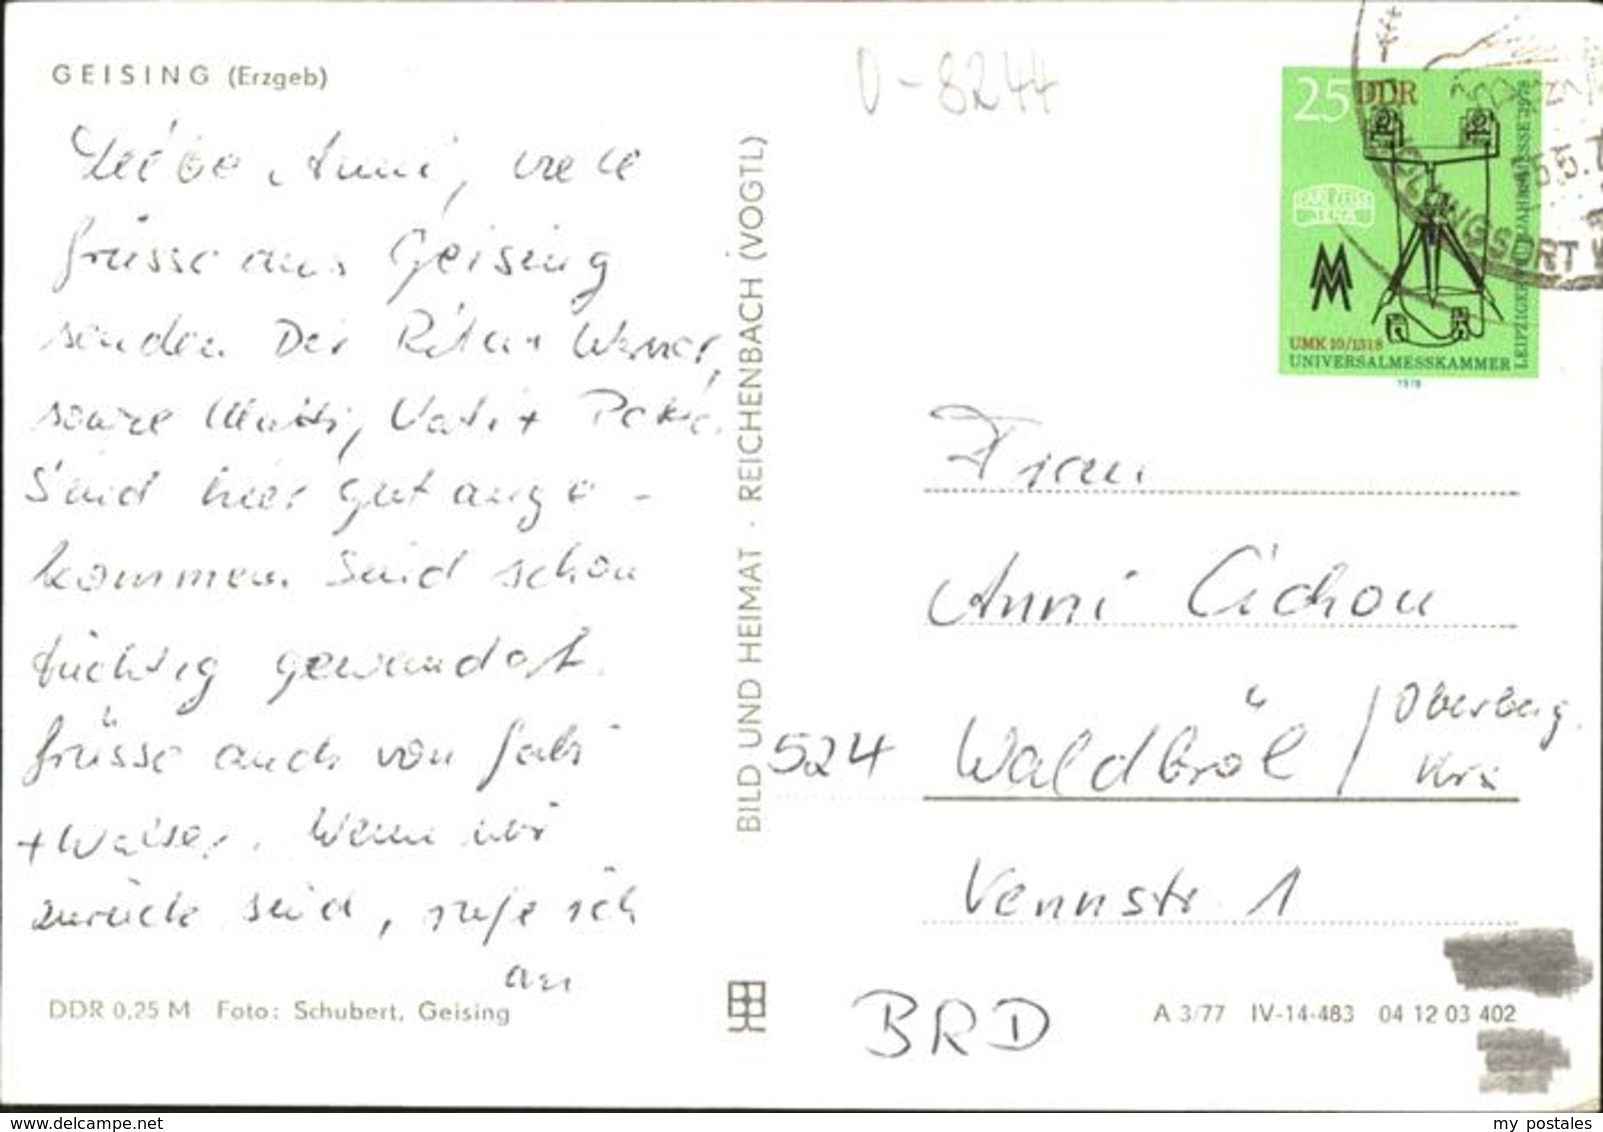 GEISING (Erzgeb)
Liebe Anni, viele
Grüsse aus Geising
senden Dir Rita + Werner,
sowie Mutti, Vati +
Sind hier gut ange-
kommen. Sind schon
tüchtig gewandert.
Grüsse auch von Gabi
+ Walter. Wenn wir
zurück sind, rufe ich
an
DDR 0,25 M Foto: Schubert, Geising
BILD UND HEIMAT · REICHENBACH (VOGTL)
0-8244
25 DDR
CARL ZEISS
JENA
MM
UMK 10/1318
UNIVERSALMESSKAMMER
LEIPZIGER FRÜHJAHRSMESSE 1978
1978
5.5.7
Frau
Anni Cichon
524 Waldbröl / Oberberg.
Krs
Vennstr. 1
BRD
A 3/77 IV-14-483 04 12 03 402
delcampe.net
my_postales